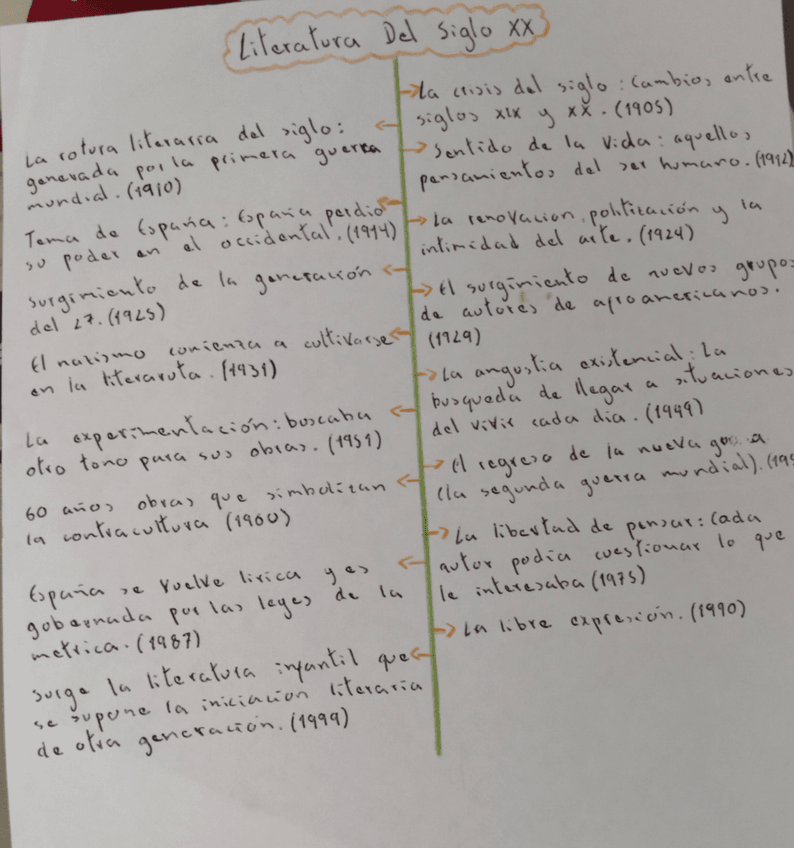 Literatura Del Siglo XX
La rotura literaria del siglo:
generada por la primera guerra
mundial. (1910)
Tema de España: España perdio
su poder en el occidental. (1914)
surgimiento de la generación
del 27. (1925)
El nazismo comienza a cultivarse
en la literaruta. (1931)
La experimentación: buscaba
otro tono para sus obras. (1951)
60 años obras que simbolizan
la contracultura (1960)
España se vuelve lirica y es
gobernada por las leyes de la
metrica. (1987)
surge la literatura infantil que
se supone la iniciacion literaria
de otra generación. (1999)
La crisis del siglo: Cambios entre
siglos XIX y XX. (1905)
Sentido de la vida: aquellos
pensamientos del ser humano. (1912)
La renovacion, politización y la
intimidad del arte. (1924)
El surgimiento de nuevos grupos
de autores de afroamericanos.
(1929)
La angustia existencial: La
busqueda de llegar a situaciones
del vivir cada dia. (1949)
El regreso de la nueva
(la segunda guerra mundial).
La libertad de pensar: Cada
autor podia cuestionar lo que
le interesaba (1975)
La libre expresión. (1990)